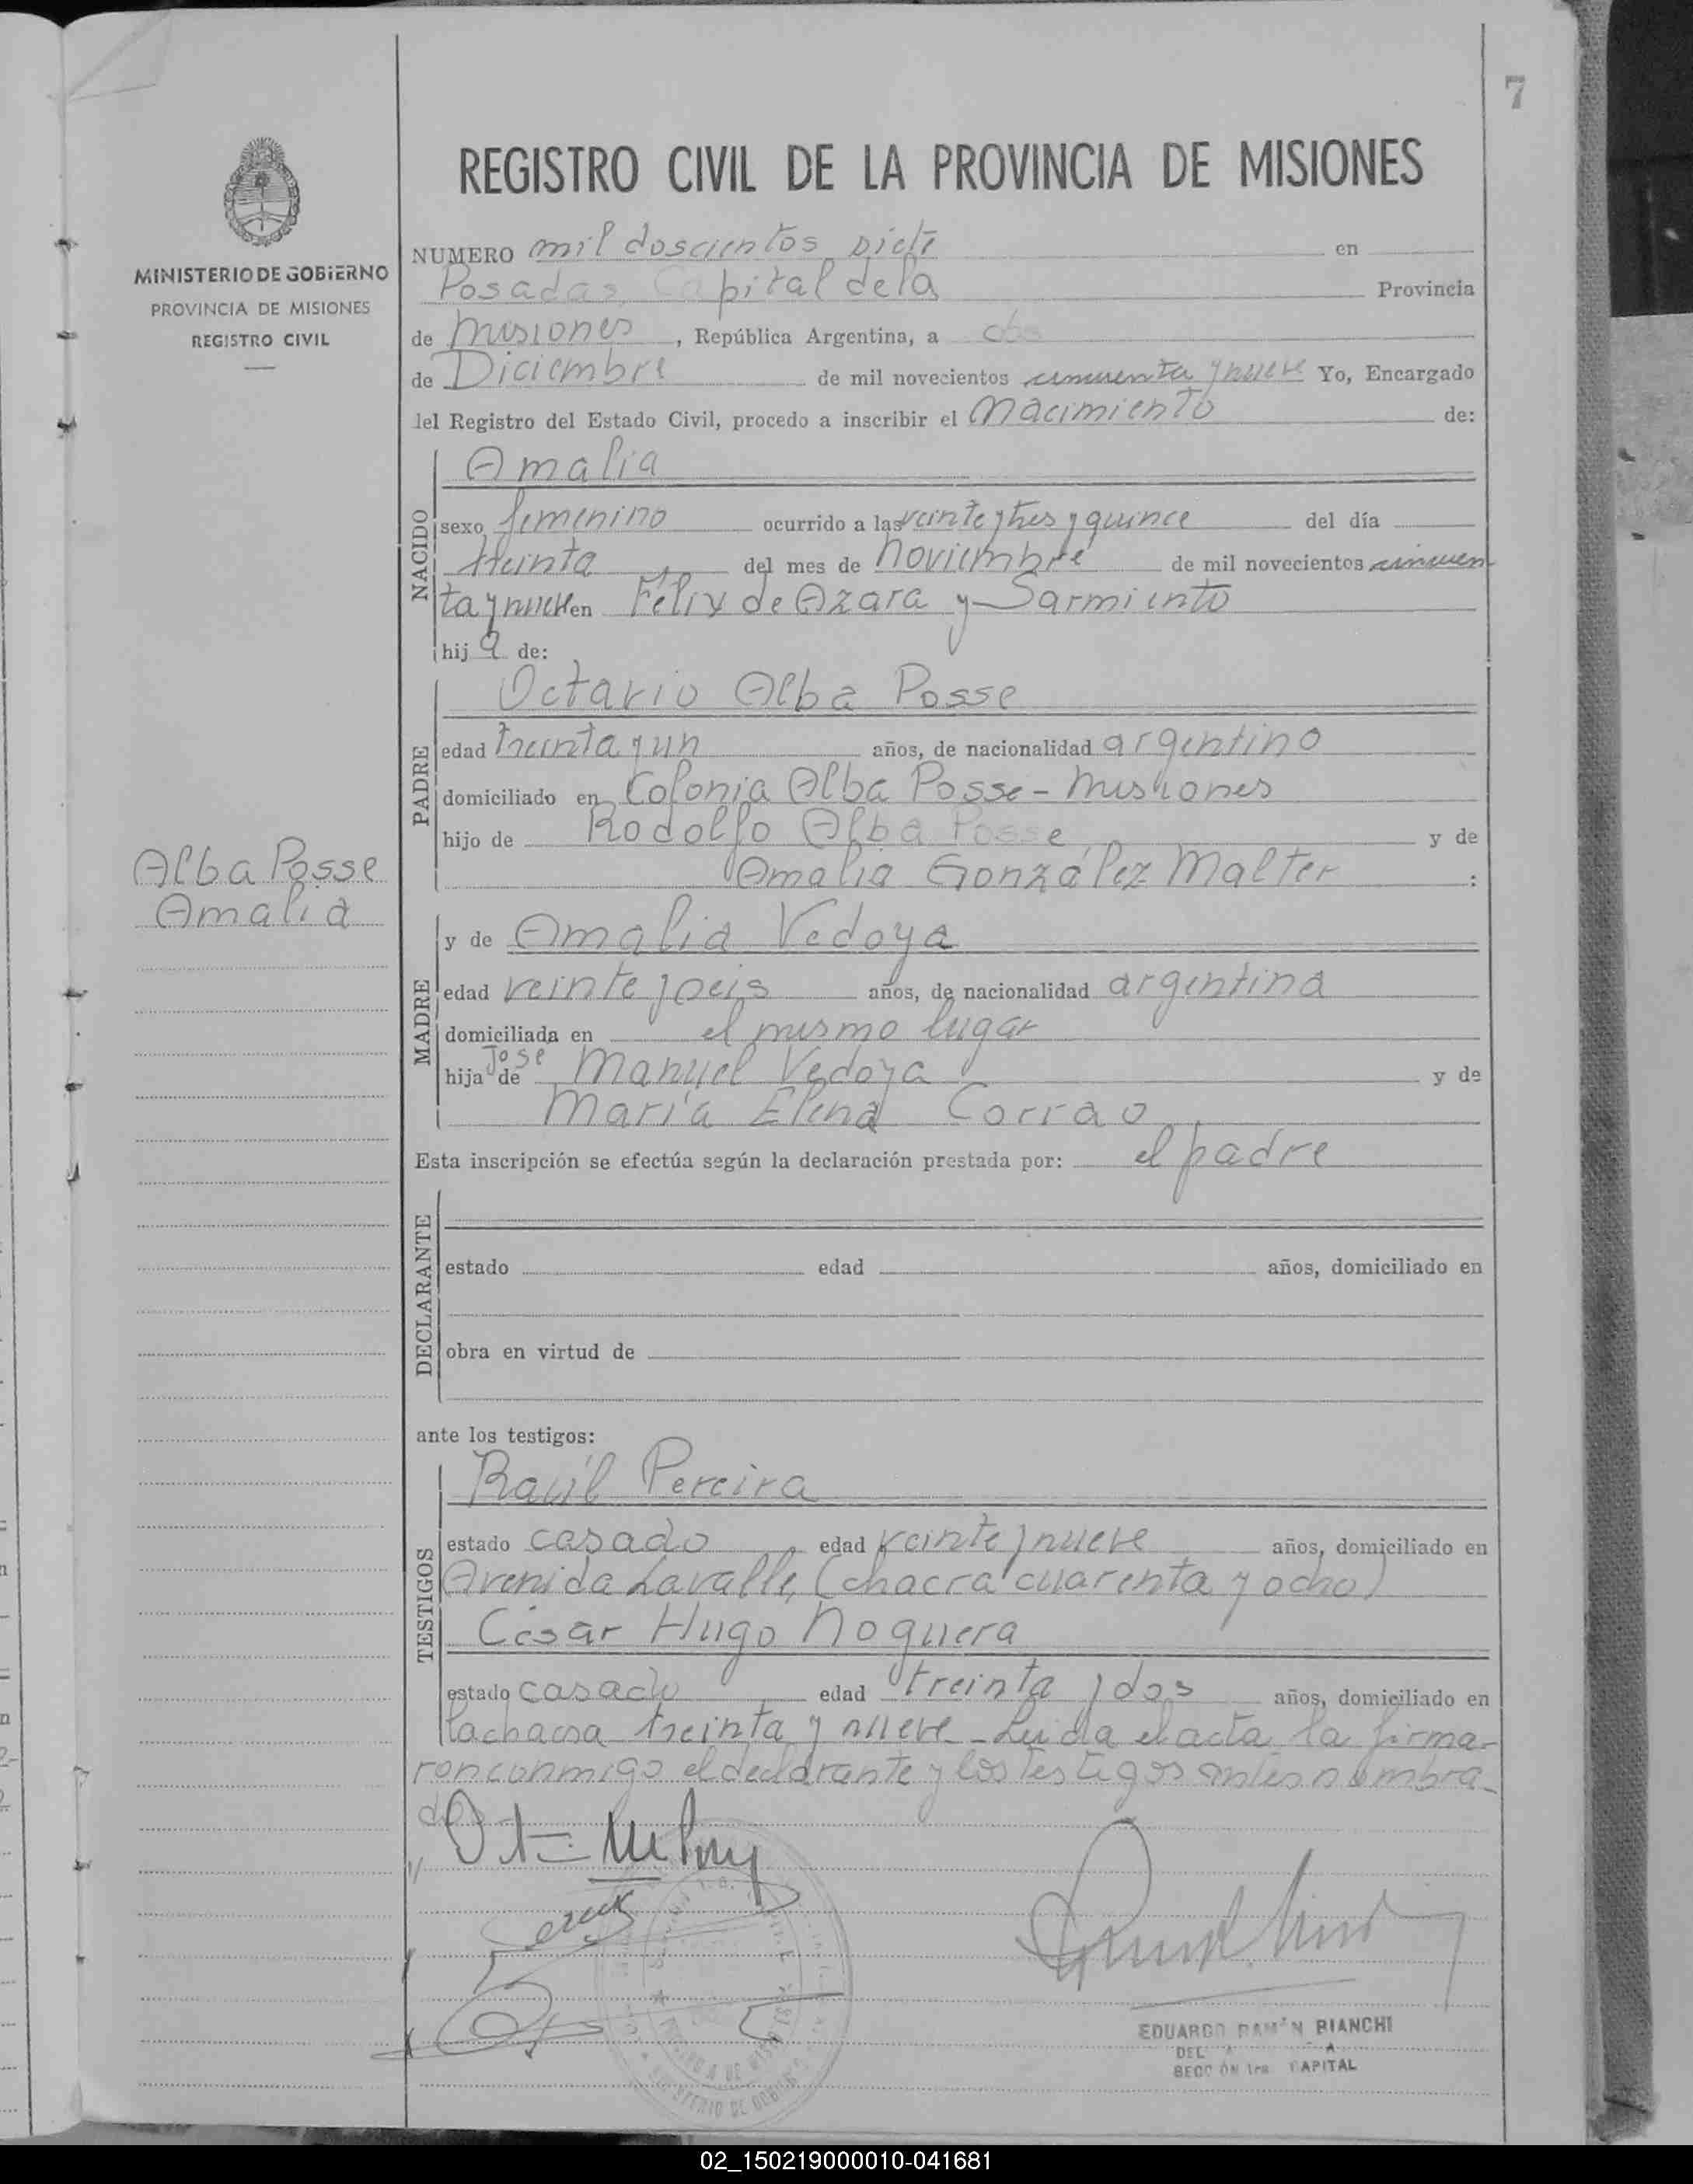 7
REGISTRO CIVIL DE LA PROVINCIA DE MISIONES
MINISTERIO DE GOBIERNO
PROVINCIA DE MISIONES
REGISTRO CIVIL
NUMERO mil doscientos siete en
Posadas, Capital de la Provincia
de Misiones, República Argentina, a dos
de Diciembre de mil novecientos cincuenta y nueve Yo, Encargado
del Registro del Estado Civil, procedo a inscribir el Nacimiento de:
NACIDO
Amalia
sexo femenino ocurrido a las veinte y tres y quince del día
treinta del mes de Noviembre de mil novecientos cincuen
ta y nueve en Félix de Azara y Sarmiento
hij a de:
PADRE
Octavio Alba Posse
edad treinta y un años, de nacionalidad argentino
domiciliado en Colonia Alba Posse - Misiones
hijo de Rodolfo Alba Posse y de
Amalia González Malter :
Alba Posse
Amalia
MADRE
y de Amalia Vedoya
edad veinte y seis años, de nacionalidad argentina
domiciliada en el mismo lugar
hija de José Manuel Vedoya y de
María Elena Corrao
Esta inscripción se efectúa según la declaración prestada por: el padre
DECLARANTE
estado edad años, domiciliado en
obra en virtud de
ante los testigos:
TESTIGOS
Raúl Pereira
estado casado edad veinte y nueve años, domiciliado en
Avenida Lavalle, (chacra cuarenta y ocho)
César Hugo Noguera
estado casado edad treinta y dos años, domiciliado en
la chacra treinta y nueve - Leida el acta la firma-
ron conmigo el declarante y los testigos antes nombra-
dos
EDUARDO RAMÓN BIANCHI
DEL
SECCIÓN 1ra CAPITAL
02_150219000010-041681